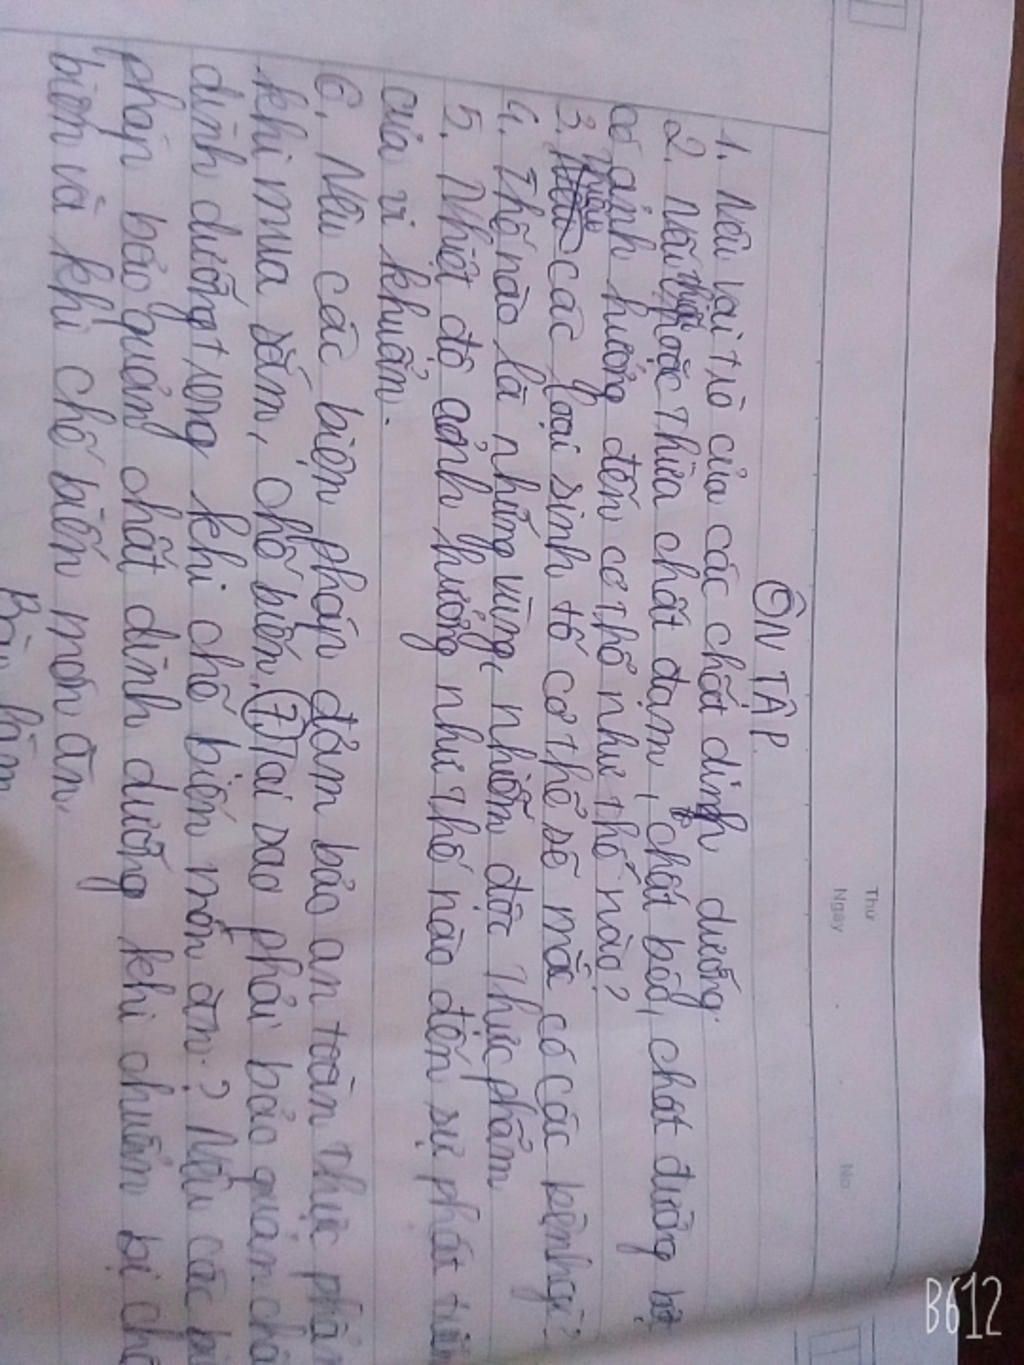 Thứ
Ngày
No
ÔN TẬP
1. Nêu vai trò của các chất dinh dưỡng.
2. Nếu thiếu hoặc thừa chất đạm, chất béo, chất đường bột
có ảnh hưởng đến cơ thể như thế nào?
3. thiếu các loại sinh tố cơ thể sẽ mắc có các bệnh gì?
4. Thế nào là nhứng vùng nhiễm độc thực phẩm
5. Nhiệt độ ảnh hưởng như thế nào đến sự phát triển
của vi khuẩn.
6. Nêu các biện pháp đảm bảo an toàn thực phẩm
khi mua sắm, chế biến. 7. Tại sao phải bảo quản
dinh dưỡng trong khi chế biến món ăn? Nêu các
pháp bảo quản chất dinh dưỡng khi chuẩn bị
biến và khi chế biến món ăn.
B612